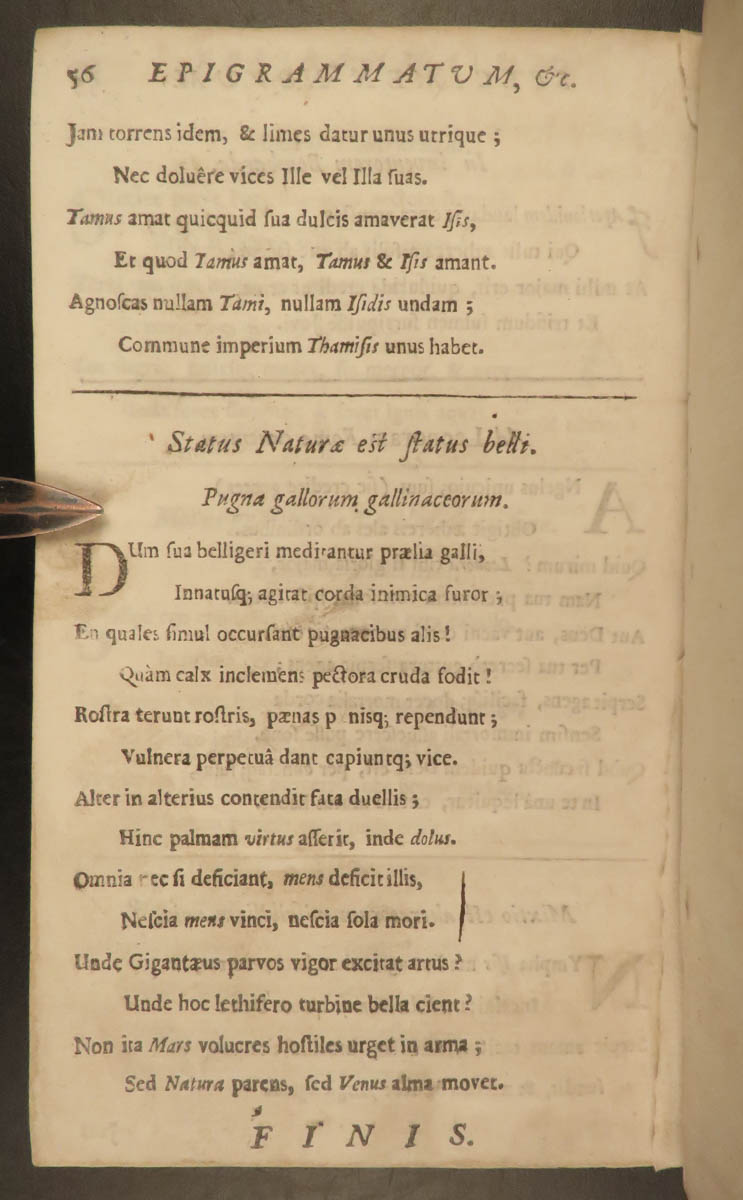 56 EPIGRAMMATUM, &c.
Jam torrens idem, & limes datur unus utrique ;
Nec doluêre vices Ille vel Illa ſuas.
Tamus amat quicquid ſua dulcis amaverat Iſis,
Et quod Tamus amat, Tamus & Iſis amant.
Agnoſcas nullam Tami, nullam Iſidis undam ;
Commune imperium Thamiſis unus habet.
Status Naturæ est ſtatus belli.
Pugna gallorum gallinaceorum.
DUm ſua belligeri meditantur prælia galli,
Innatuſq; agitat corda inimica furor ;
En quales ſimul occurſant pugnacibus alis !
Quàm calx inclemens pectora cruda fodit !
Roſtra terunt roſtris, pænas p nisq; rependunt ;
Vulnera perpetuâ dant capiuntq; vice.
Alter in alterius contendit fata duellis ;
Hinc palmam virtus aſſerit, inde dolus.
Omnia ec ſi deficiant, mens deficit illis,
Neſcia mens vinci, neſcia ſola mori.
Unde Gigantæus parvos vigor excitat artus ?
Unde hoc lethifero turbine bella cient ?
Non ita Mars volucres hoſtiles urget in arma ;
Sed Natura parens, ſed Venus alma movet.
FINIS.